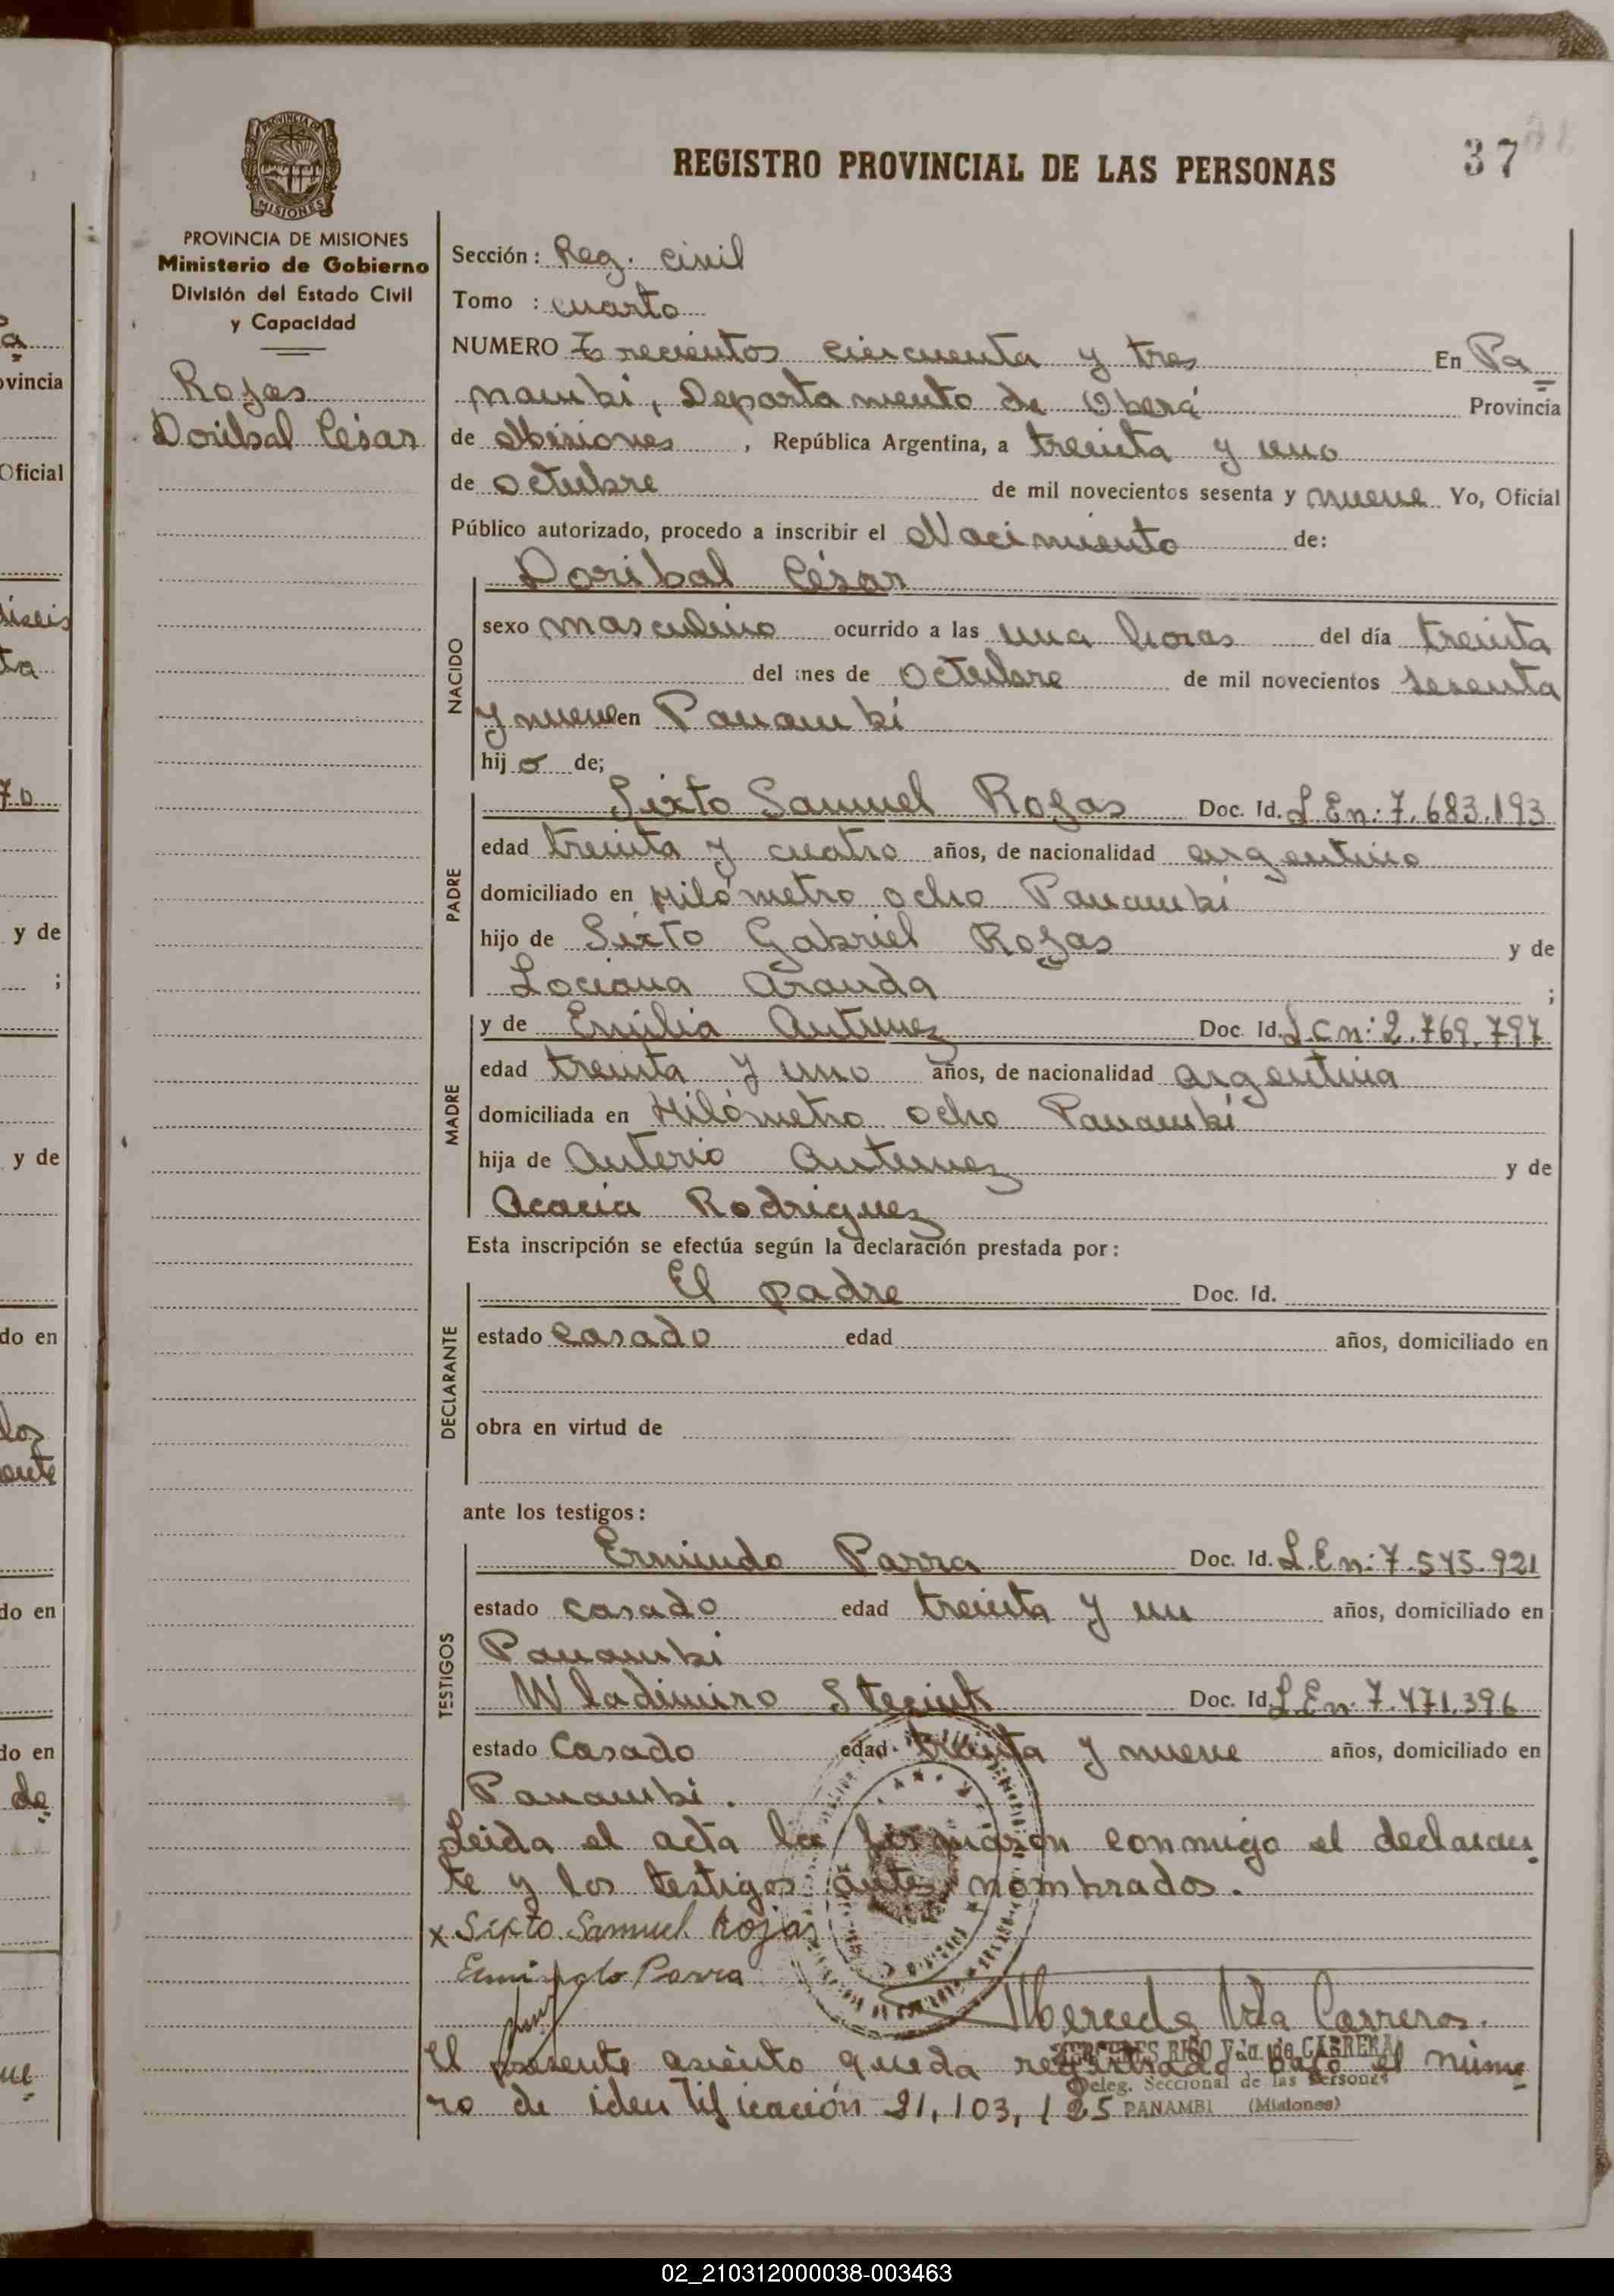 37
REGISTRO PROVINCIAL DE LAS PERSONAS
PROVINCIA DE MISIONES
Ministerio de Gobierno
División del Estado Civil
y Capacidad
Rojas
Doribal César
Sección: Reg. civil
Tomo : cuarto
NUMERO Trecientos cincuenta y tres En Pa
nambi, Departamento de Oberá Provincia
de Misiones, República Argentina, a treinta y uno
de octubre de mil novecientos sesenta y nueve Yo, Oficial
Público autorizado, procedo a inscribir el Nacimiento de:
Doribal César
NACIDO
sexo masculino ocurrido a las una horas del día treinta
del mes de octubre de mil novecientos sesenta
y nueve en Panambi
hijo de;
PADRE
Sixto Samuel Rojas Doc. Id. L.En: 7.683.193
edad treinta y cuatro años, de nacionalidad argentino
domiciliado en Kilómetro ocho Panambi
hijo de Sixto Gabriel Rojas y de
Lociana Aranda ;
MADRE
y de Emilia Antunez Doc. Id. L C n: 2.769.797
edad treinta y uno años, de nacionalidad argentina
domiciliada en Kilómetro ocho Panambí
hija de Anterio Antunez y de
Acacia Rodriguez
Esta inscripción se efectúa según la declaración prestada por:
DECLARANTE
El padre Doc. Id.
estado casado edad años, domiciliado en
obra en virtud de
ante los testigos:
TESTIGOS
Ermindo Parra Doc. Id. L.En: 7.545.921
estado casado edad treinta y un años, domiciliado en
Panambi
Wladimiro Doc. Id. L.En: 7.471.396
estado Casado edad treinta y nueve años, domiciliado en
Panambi.
Leida el acta la firmaron conmigo el declaran
te y los testigos antes nombrados.
x Sixto Samuel Rojas
Ermindo Parra
El presente asiento queda registrado bajo el núme
ro de identificación 21,103,125
Deleg. Seccional de las Personas
PANAMBI (Misiones)
02_210312000038-003463